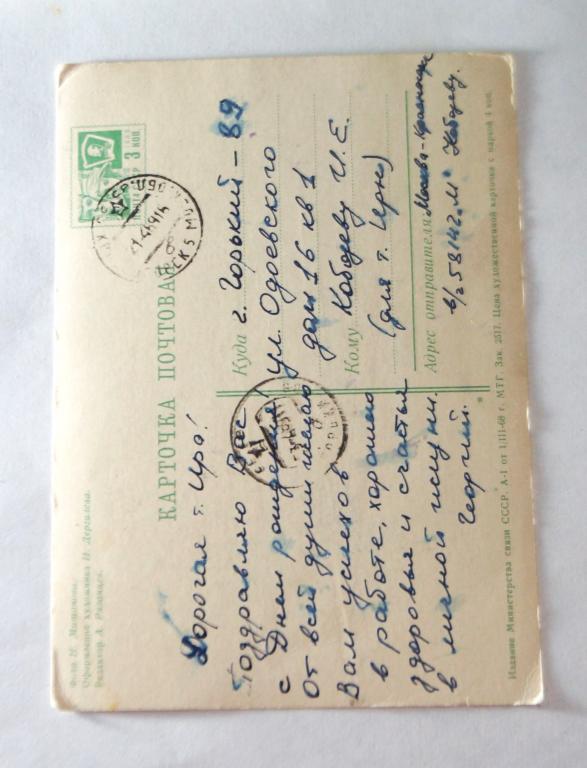 Фото Н. Матюшина.
Оформление художника П. Дергилева.
Редактор А. Рязанцев.
КАРТОЧКА ПОЧТОВАЯ
3 КОП.
Дорогая т. Ира!
Поздравляю Вас
с Днем рождения,
От всей души желаю
Вам успехов
в работе, хорошего
здоровья и счастья
в личной жизни.
Георгий.
Куда г. Горький-89
ул. Одоевского
дом 16 кв 1
Кому Кобцеву И.Е.
(для т. Иры)
Адрес отправителя: Москва-
в/ч 53142 "М"
Издание Министерства связи СССР. А-1 от 1/III-68 г. МТГ. Зак. 2517. Цена художественной карточки с маркой 4 коп.